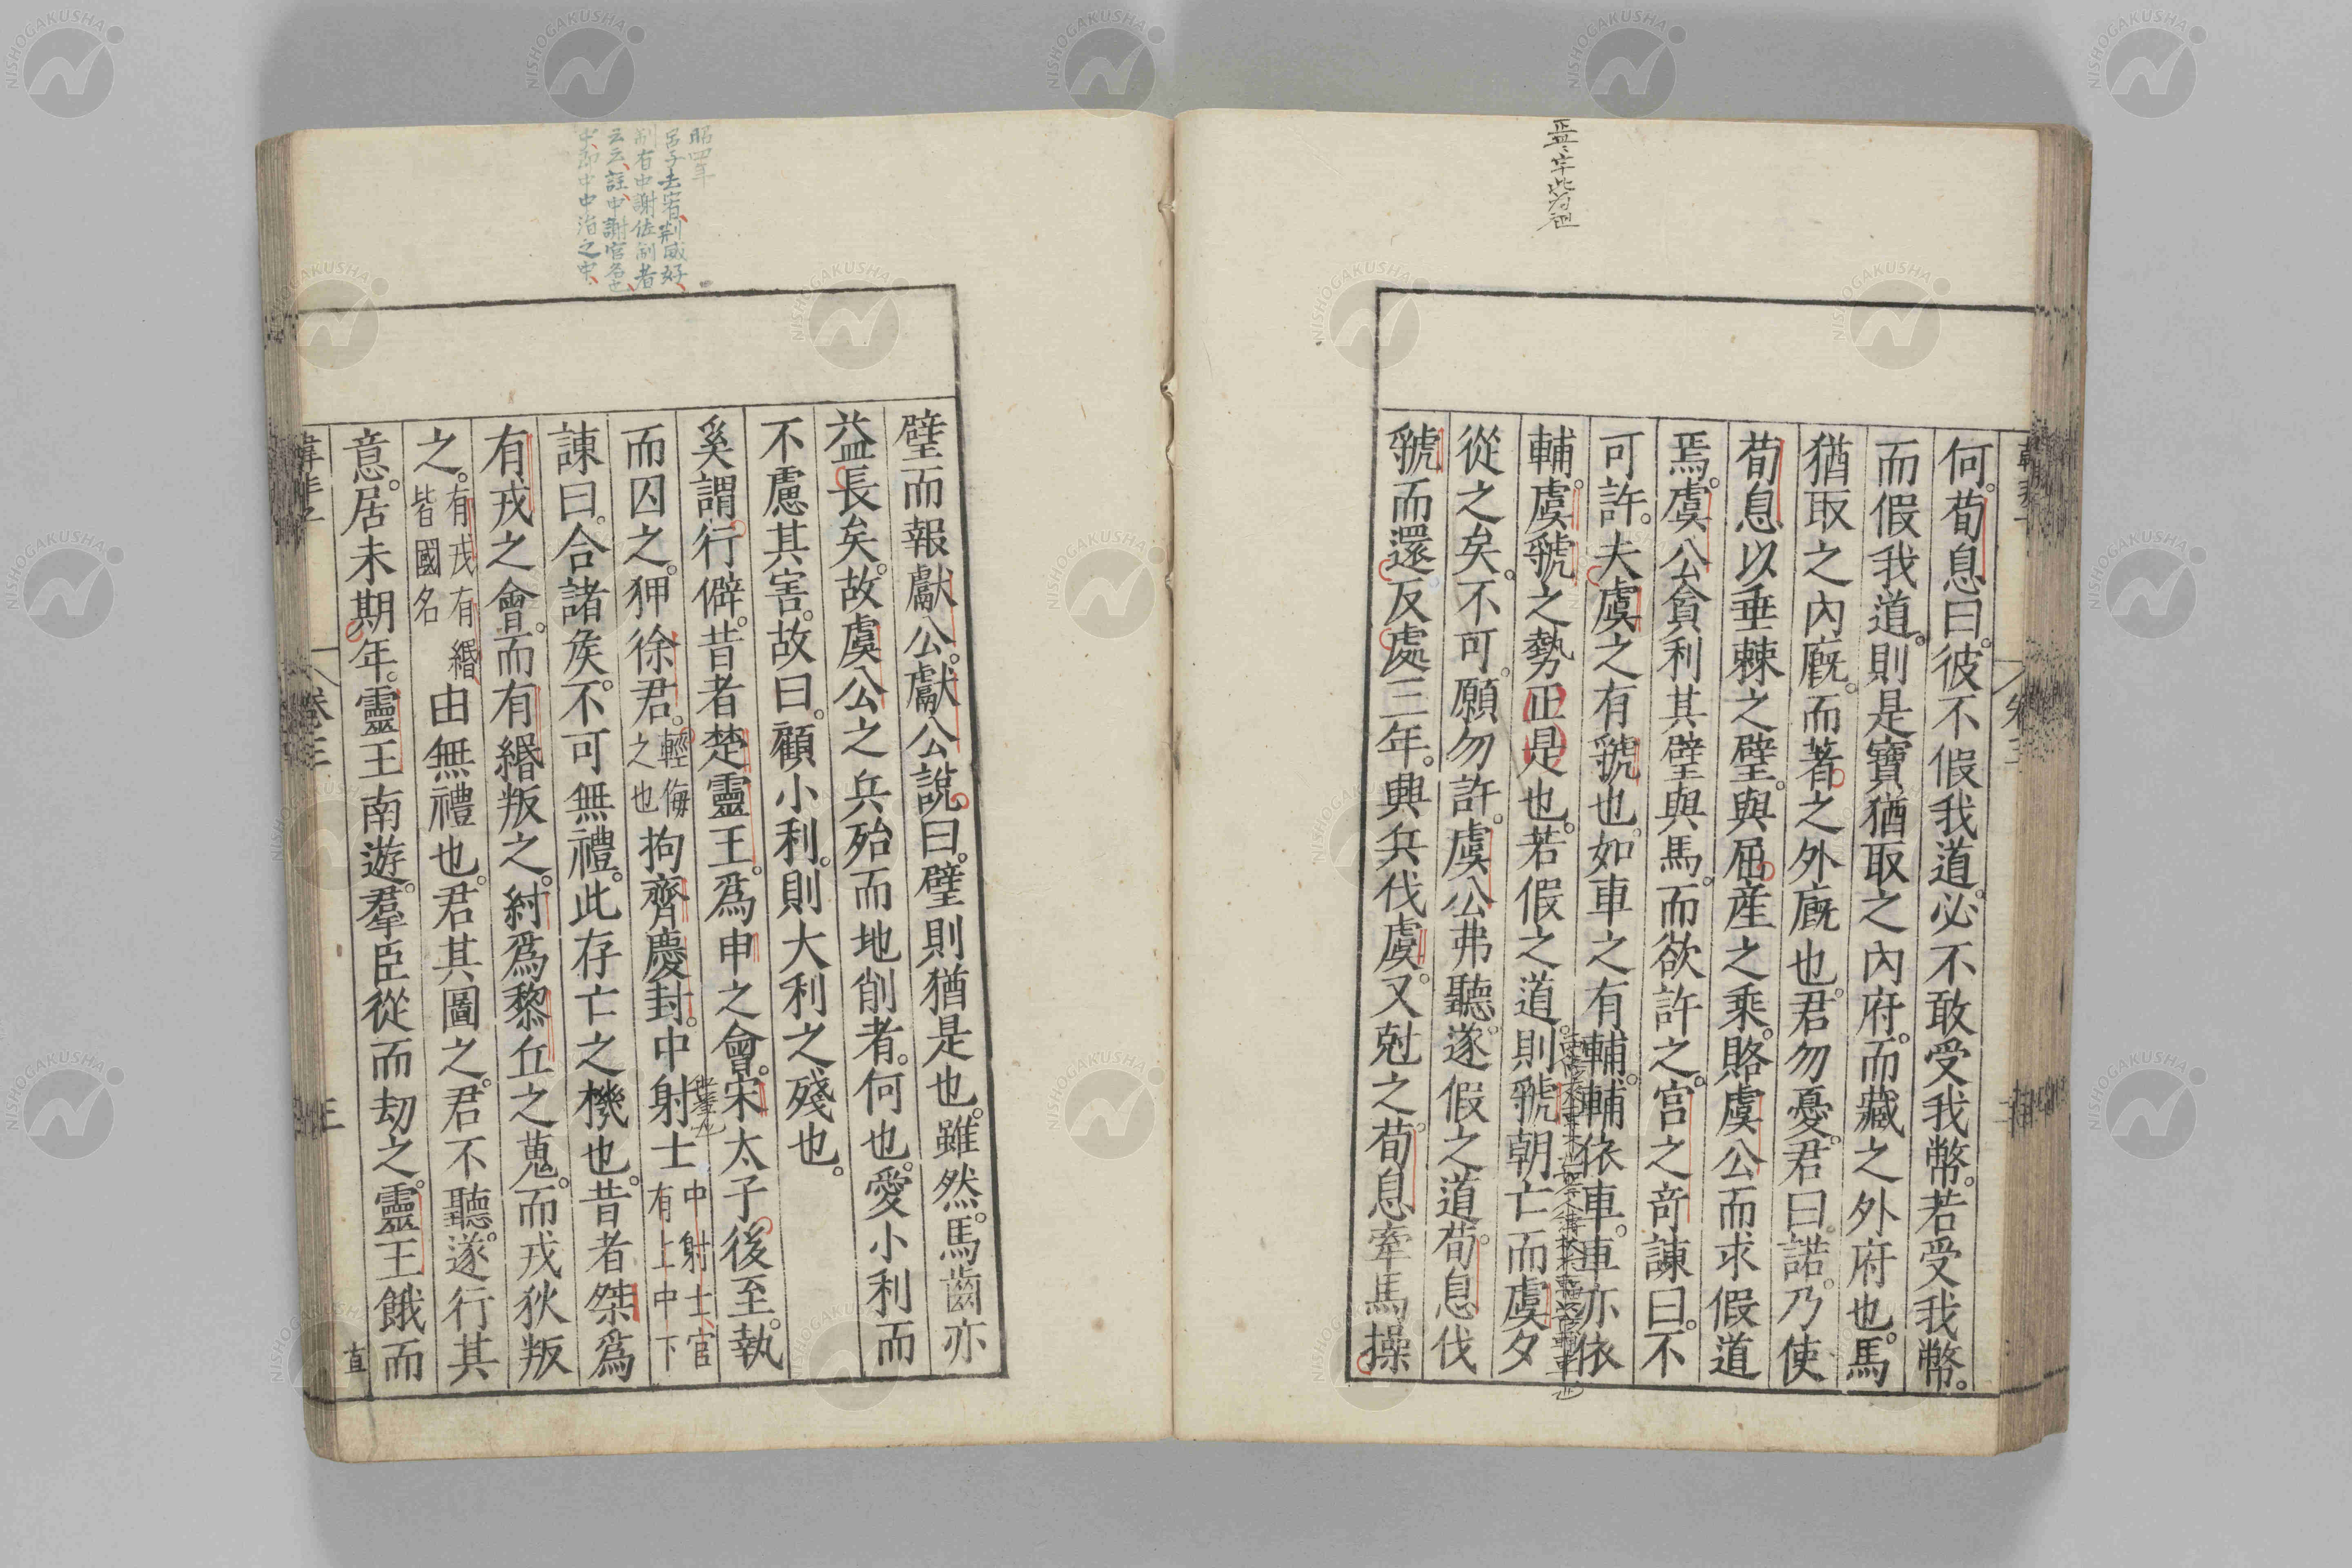 何。荀息曰。彼不假我道。必不敢受我幣。若受我幣。
而假我道。則是寶猶取之內府。而藏之外府也。馬
猶取之內廐。而著之外廐也。君勿憂。君曰諾。乃使
荀息以垂棘之璧。與屈產之乘。賂虞公而求假道
焉。虞公貪利其璧與馬。而欲許之。宮之奇諫曰。不
可許。夫虞之有虢也。如車之有輔。輔依車。車亦依
輔。虞虢之勢正是也。若假之道。則虢朝亡而虞夕
從之矣。不可。願勿許。虞公弗聽。遂假之道。荀息伐
虢而還。反處三年。興兵伐虞。又尅之。荀息牽馬操
璧而報獻公。獻公說曰。璧則猶是也。雖然。馬齒亦
益長矣。故虞公之兵殆而地削者。何也。愛小利而
不慮其害。故曰。顧小利。則大利之殘也。
奚謂行僻。昔者楚靈王。爲申之會。宋太子後至。執
而囚之。狎徐君。輕侮之也拘齊慶封。中射士中射士官有上中下
諫曰。合諸矦。不可無禮。此存亡之機也。昔者桀爲
有戎之會。而有緡叛之。紂爲黎丘之蒐。而戎狄叛
之。有戎有緡皆國名由無禮也。君其圖之。君不聽。遂行其
意。居未期年。靈王南遊。羣臣從而劫之。靈王餓而
卷三
三
直
NISHOGAKUSHA